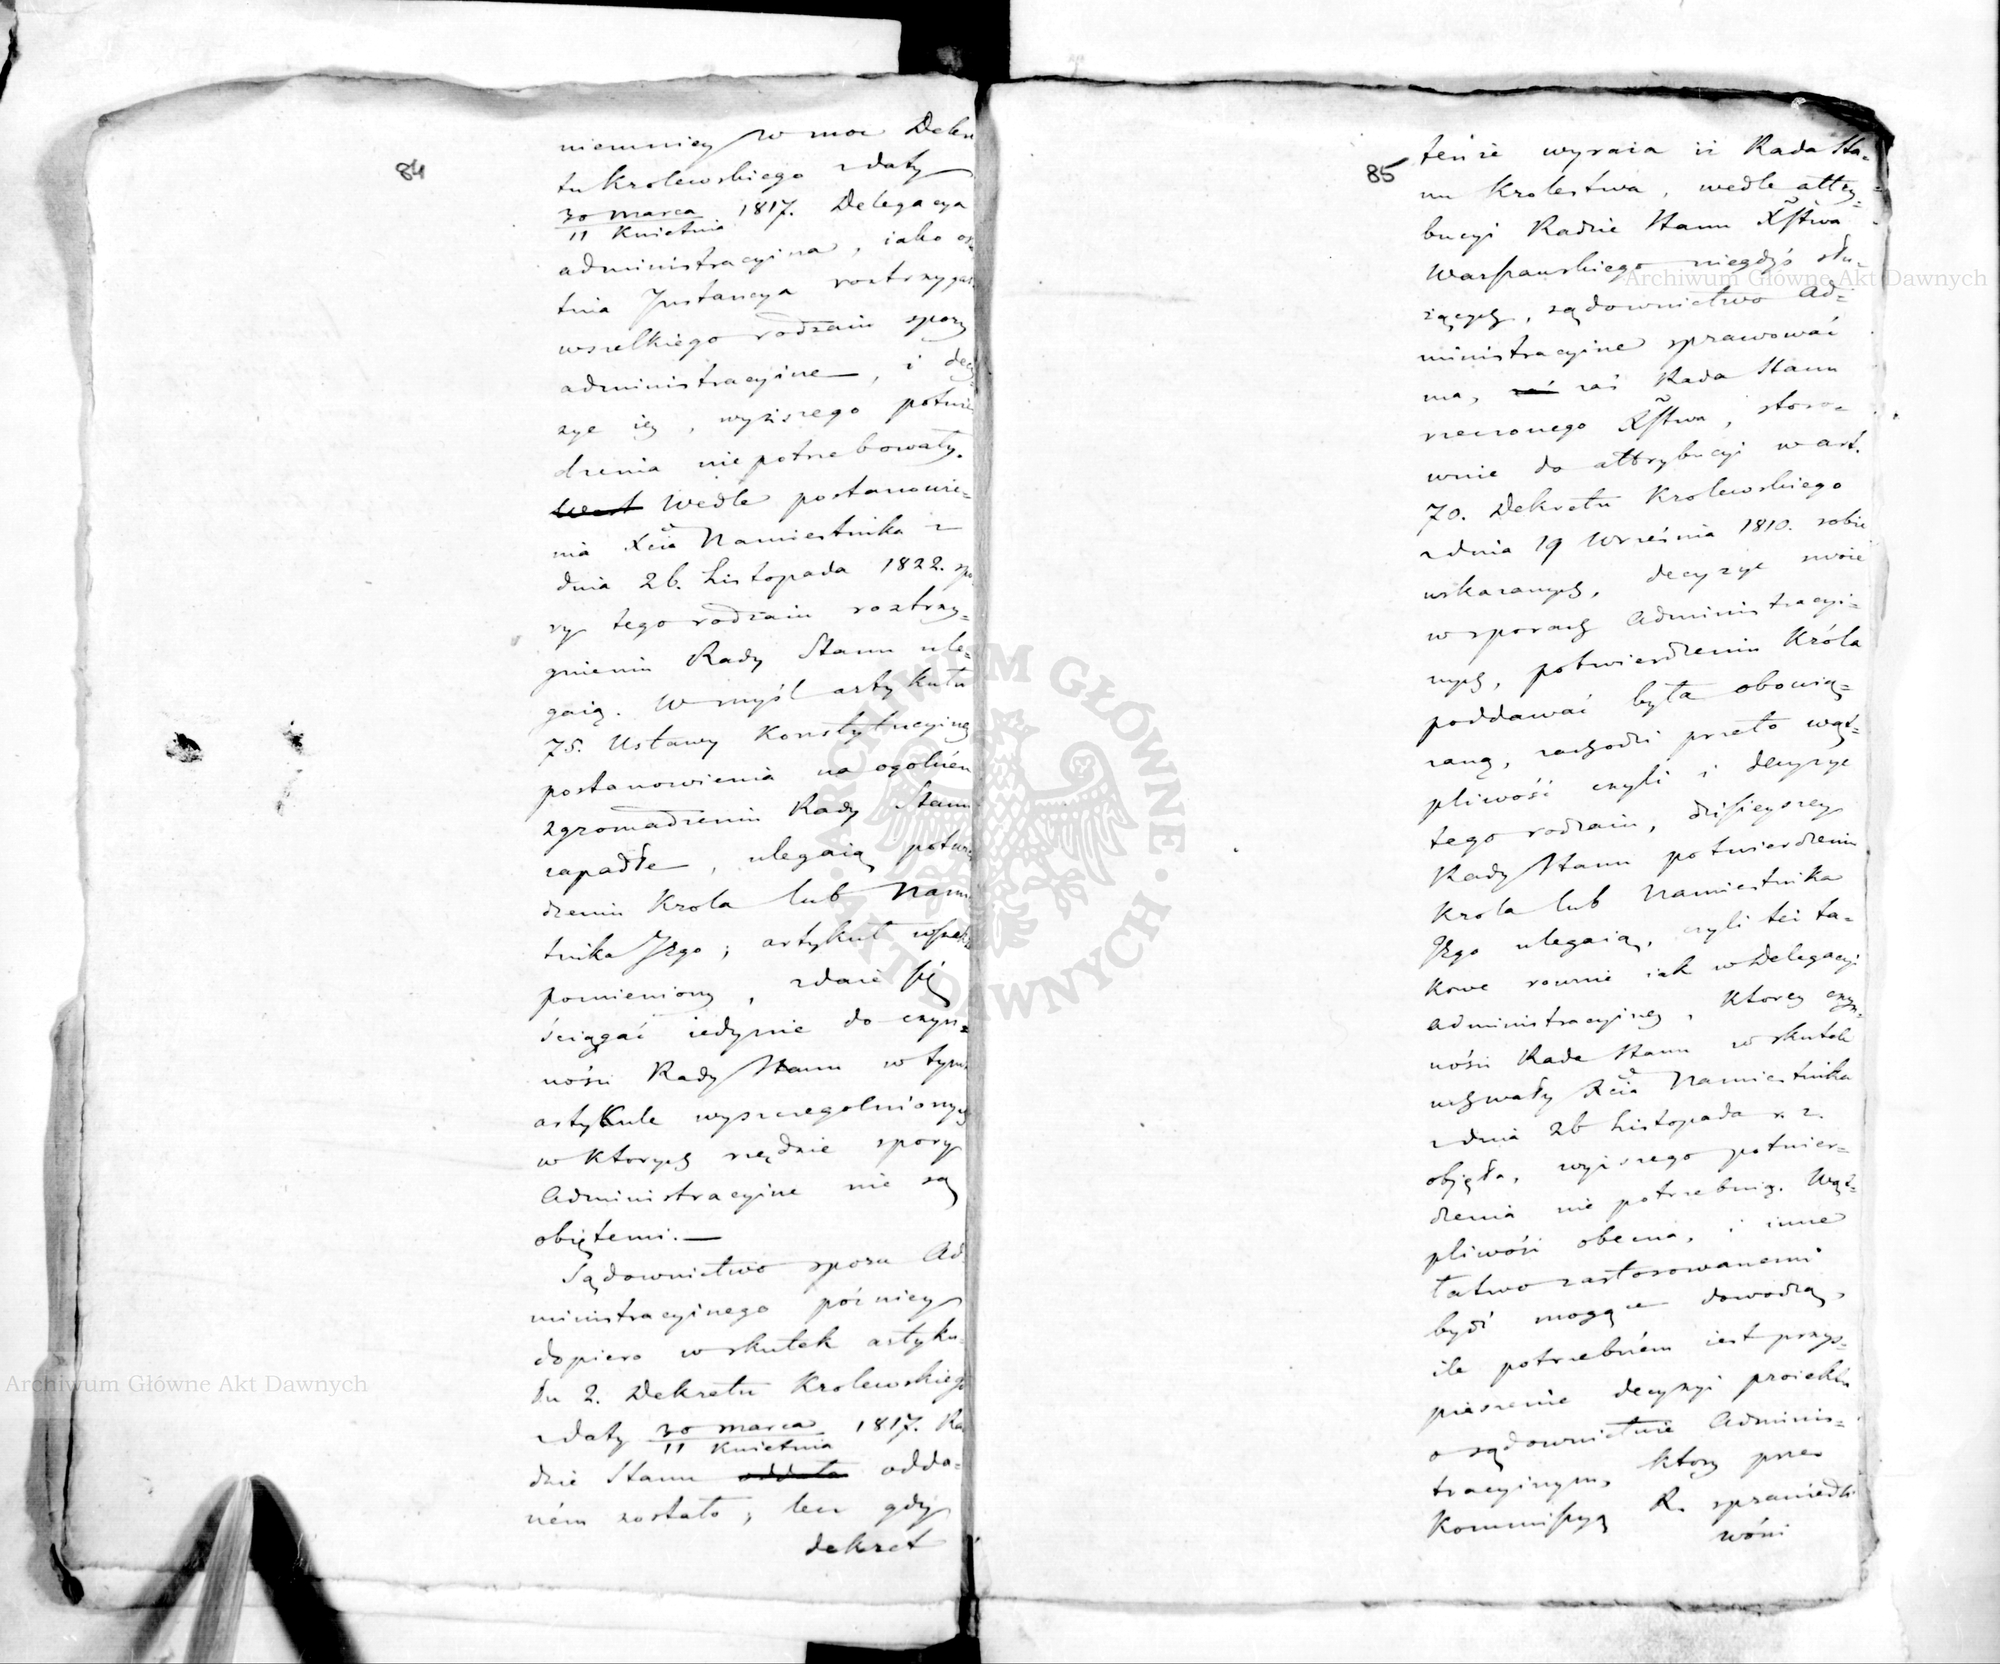 84
niemniey w moc Dekre
tu Krolewskiego z daty
30 marca 1817. Delegacya
11 Kwietnia
administracyina, iako os
tnia Instancya roztrzygała
wszelkiego rodzaiu spory
administracyine, i decy=
zye iey, wyższego potwier
dzenia nie potrzebowały.
Wedle postanowie=
nia Xcia Namiestnika z
dnia 26. Listopada 1822. spo
ry tego rodzaiu roztrzy=
gnieniu Rady Stanu ule=
gaią. W myśl artykułu
75. Ustawy Konstytucyiney
postanowienia na ogolném
zgromadzeniu Rady Stanu
zapadłe, ulegaią potwier
dzeniu Krola lub Namies
tnika Jego; artykuł wszakże
pomieniony, zdaie się
ściągać iedynie do czyn=
ności Rady Stanu w tym
artykule wyszczegolnionych
w ktorych rzędzie spory
Administracyine nie są
obiętemi.—
Sądownictwo sporu Ad
ministracyinego poźniey
dopiero w skutek artyku
łu 2. Dekretu Krolewskiego
z daty 30 marca 1817. Ra
11 Kwietnia
dzie Stanu oddała odda=
ném zostało; lecz gdy
dekret
85
tenże wyraża iż Rada Sta=
nu Krolestwa, wedle attry=
bucyi Radzie Stanu Xstwa
Warszawskiego niegdyś słu=
żących, sądownictwo Ad=
ministracyine sprawować
ma, zaś Rada Stanu
rzeczonego Xstwa, stoso=
wnie do attrybucyi w art.
70. Dekretu Krolewskiego
z dnia 19 Września 1810. sobie
wskazanych, decyzye swoie
w sporach Administracyi=
nych, potwierdzeniu Króla
poddawać była obowią=
zaną, zachodzi przeto wąt=
pliwość czyli i decyzye
tego rodzaiu, dzisieyszey
Rady Stanu potwierdzeniu
Krola lub Namiestnika
Jego ulegaią, czyli też ta=
kowe rownie iak w Delegacyi
administracyiney, ktorey czyn=
ności Rada Stanu w skutek
uchwały Xcia Namiestnika
z dnia 26 Listopada r. z.
obięła, wyższego potwier=
dzenia nie potrzebuią. Wąt=
pliwość obecna, i inne
łatwo zastosowanemi
bydź mogące dowodzą,
ile potrzebném iest przys=
pieszenie decyzyi proiektu
o sądownictwie Adminis=
tracyinym, ktory przez
Kommissyą R. sprawiedli
wości
Archiwum Główne Akt Dawnych
Archiwum Główne Akt Dawnych
ARCHIWUM GŁÓWNE · AKT DAWNYCH ·